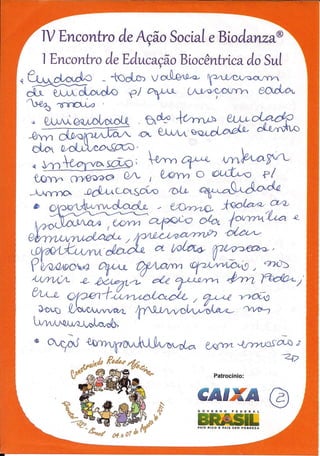 IV Encontro de Ação Social e Biodanza®
I Encontro de Educação Biocêntrica do Sul
• Cuidado - todos valores precisam
de cuidado p/ que cresçam cada
vez mais.
• curiosidade. Qdo temos cuidado
em despertar a curiosidade dentro
da educação.
• integração: tem que interagir
com nosso er, com o outro p/
uma educação de qualidade
• oportunidade - como todas as
palavras, com apoio da família e
comunidade, precisamos dar
oportunidade a elas pessoas.
Pessoas que geram opinião, nos
unir e exigir de quem tem Poder,
crie oportunidade, que não
são lacunas preenchidas nas
Universidades
• ação compartilhada com emoção:
Construindo Redes Afetivas
Gramado / RS - Brasil 04 a 07 de Agosto de 2011
Patrocínio:
CAIXA
GOVERNO FEDERAL
BRASIL
PAÍS RICO É PAÍS SEM POBREZA
2